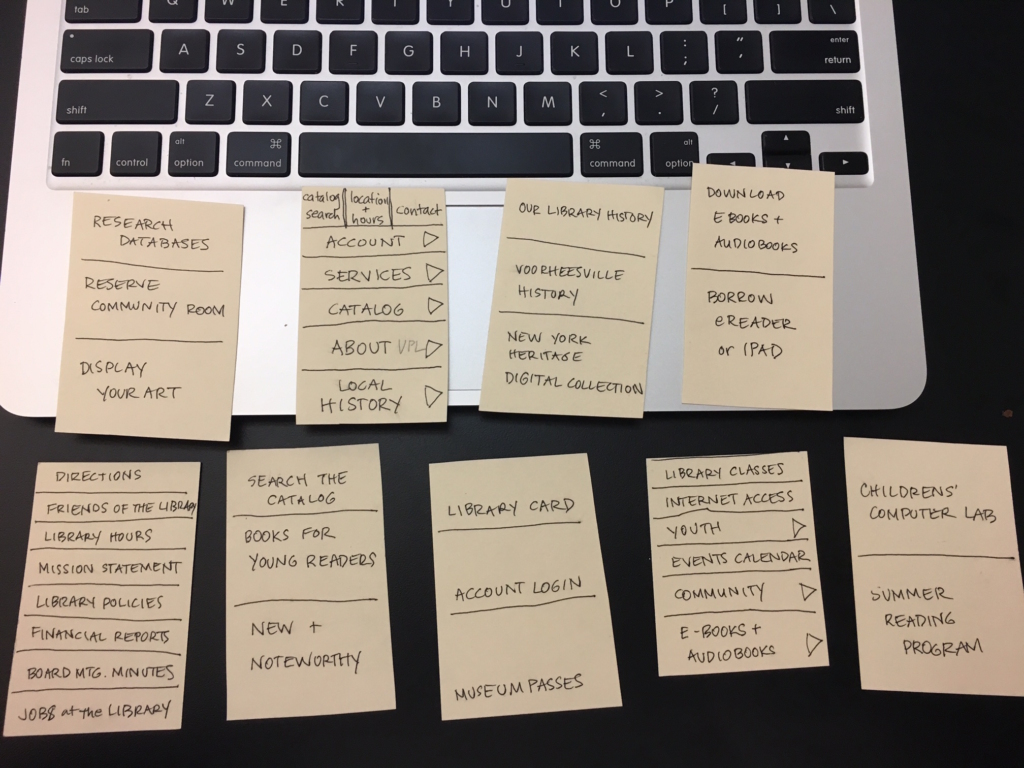 tab Q W E R T Y U I O P [ ] \
caps lock A S D F G H J K L : ; " ' enter return
shift Z X C V B N M < , > . ? / shift
fn control alt option ⌘ command ⌘ command alt option
RESEARCH
DATABASES
RESERVE
COMMUNITY ROOM
DISPLAY
YOUR ART
catalog search location + hours contact
ACCOUNT
SERVICES
CATALOG
ABOUT VPL
LOCAL
HISTORY
OUR LIBRARY HISTORY
VOORHEESVILLE
HISTORY
NEW YORK
HERITAGE
DIGITAL COLLECTION
DOWNLOAD
EBOOKS +
AUDIOBOOKS
BORROW
eREADER
or IPAD
DIRECTIONS
FRIENDS OF THE LIBRARY
LIBRARY HOURS
MISSION STATEMENT
LIBRARY POLICIES
FINANCIAL REPORTS
BOARD MTG. MINUTES
JOBS at the LIBRARY
SEARCH THE
CATALOG
BOOKS FOR
YOUNG READERS
NEW +
NOTEWORTHY
LIBRARY CARD
ACCOUNT LOGIN
MUSEUM PASSES
LIBRARY CLASSES
INTERNET ACCESS
YOUTH
EVENTS CALENDAR
COMMUNITY
E-BOOKS +
AUDIOBOOKS
CHILDRENS'
COMPUTER LAB
SUMMER
READING
PROGRAM